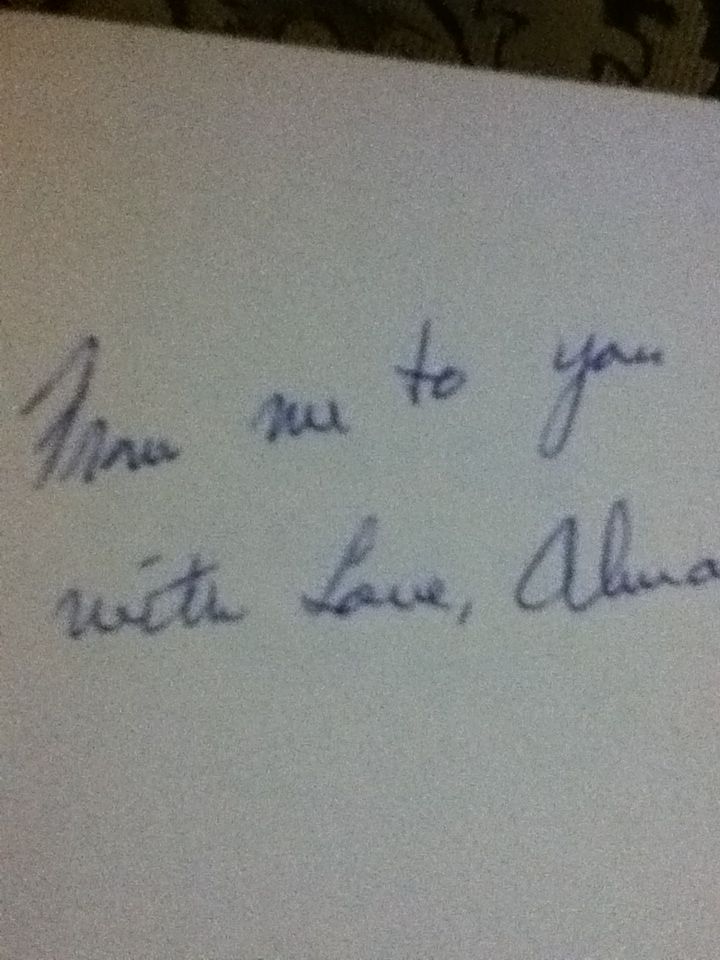 From me to you
with Love, Alma